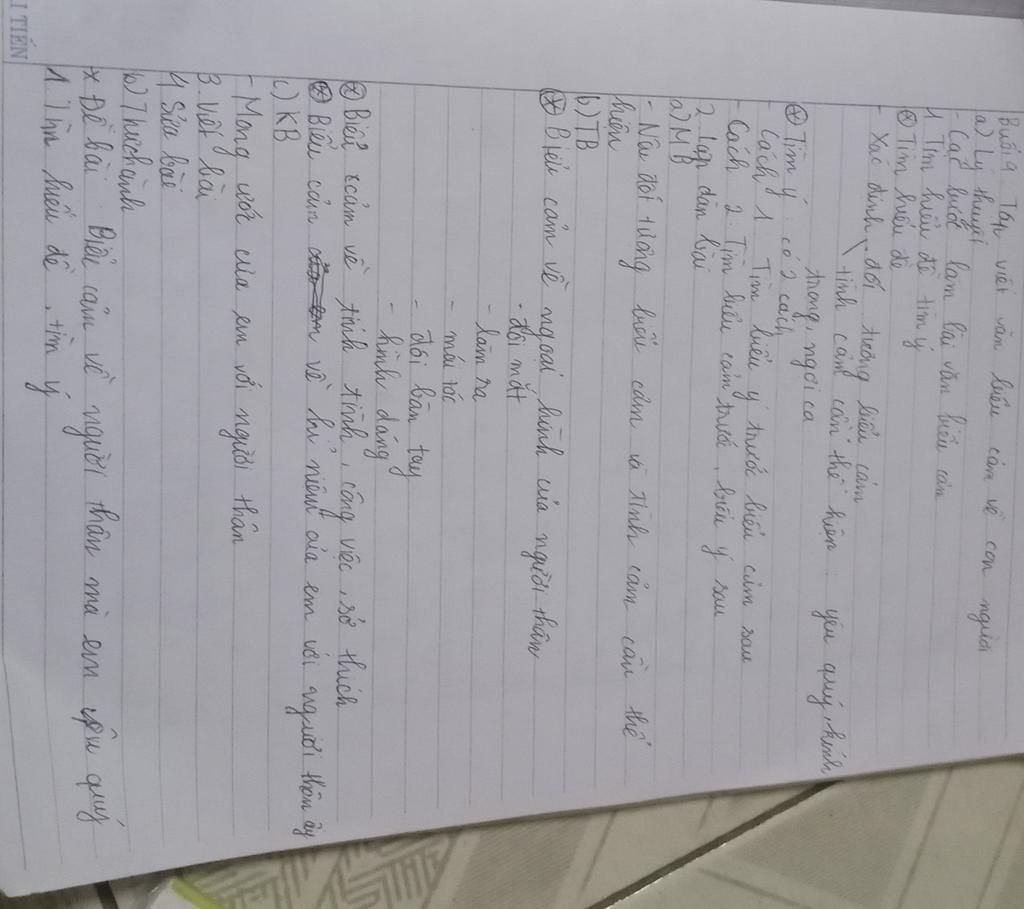 Buổi 9. Tập viết văn biểu cảm về con người
a) Lý thuyết
- Các bước làm bài văn biểu cảm
1. Tìm hiểu đề tìm ý
* Tìm hiểu đề
- Xác định đối tượng biểu cảm
tình cảm cần thể hiện: yêu quý, kính
trọng, ngợi ca
* Tìm ý: có 2 cách
- Cách 1. Tìm biểu ý trước biểu cảm sau
- Cách 2. Tìm biểu cảm trước, biểu ý sau
2. Lập dàn bài
a) MB
- Nêu đối tượng biểu cảm và tình cảm cần thể
hiện
b) TB
* Biểu cảm về ngoại hình của người thân
- đôi mắt
- làn da
- mái tóc
- đôi bàn tay
- hình dáng
* Biểu cảm về tính tình, công việc, sở thích
* Biểu cảm về kỉ niệm của em với người thân ấy
c) KB
- Mong ước của em với người thân
3. Viết bài
4. Sửa bài
b) Thực hành
* Đề bài: Biểu cảm về người thân mà em yêu quý
1. Tìm hiểu đề, tìm ý
I TIẾN